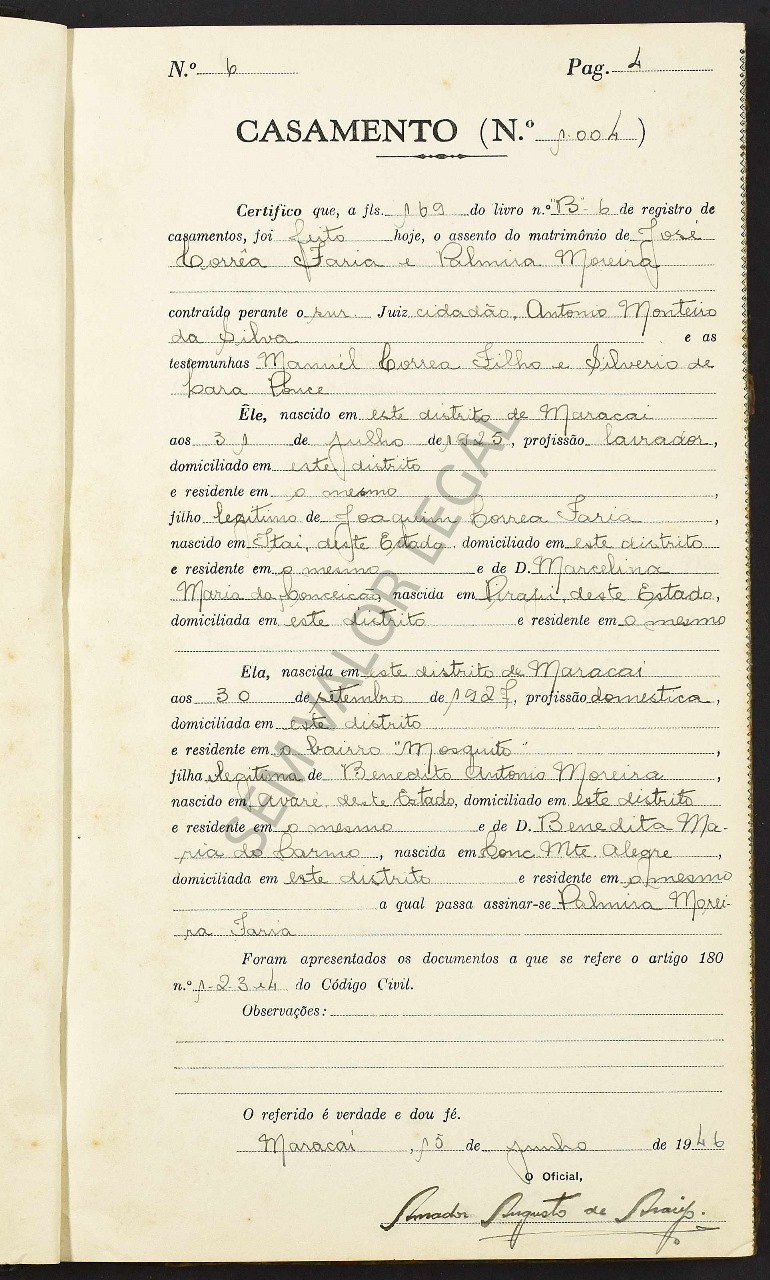 N.º 6 Pag. 4
CASAMENTO (N.º 1.004)
Certifico que, a fls. 169 do livro n.º "B"-6 de registro de
casamentos, foi feito hoje, o assento do matrimônio de José
Corrêa Faria e Palmira Moreira
contraído perante o snr. Juiz cidadão, Antonio Monteiro
da Silva e as
testemunhas Manuel Correa Filho e Silverio de
Cara Ponce
Êle, nascido em este distrito de Maracai
aos 31 de julho de 1925, profissão lavrador,
domiciliado em este distrito
e residente em o mesmo,
filho legitimo de Joaquim Correa Faria,
nascido em Itai, deste Estado, domiciliado em este distrito
e residente em o mesmo e de D. Marcelina
Maria da Conceicao, nascida em Piraju, deste Estado,
domiciliada em este distrito e residente em o mesmo
Ela, nascida em este distrito de Maracai
aos 30 de setembro de 1927, profissão domestica,
domiciliada em este distrito
e residente em o bairro "Mosquito",
filha legitima de Benedito Antonio Moreira,
nascido em Avaré, deste Estado, domiciliado em este distrito
e residente em o mesmo e de D. Benedita Ma-
ria do Carmo, nascida em Conc. Mte. Alegre,
domiciliada em este distrito e residente em o mesmo
a qual passa assinar-se Palmira Morei-
ra Faria
Foram apresentados os documentos a que se refere o artigo 180
n.º 1-2-3-4 do Código Civil.
Observações:
O referido é verdade e dou fé.
Maracai, 15 de junho de 1946
O Oficial,
Amador Augusto de Araujo.
SEM VALOR LEGAL